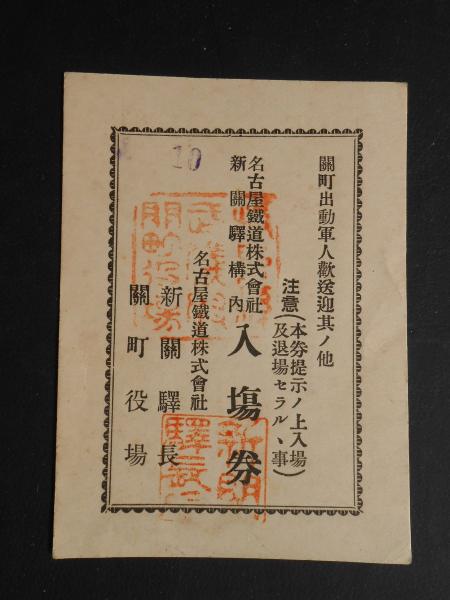 關町出動軍人歡送迎其ノ他
注意(本券提示ノ上入場
及退場セラルヽ事)
名古屋鐵道株式會社
新關驛構內
入塲券
名古屋鐵道株式會社
新關驛長
關町役場
10
新關
驛長
關町役場